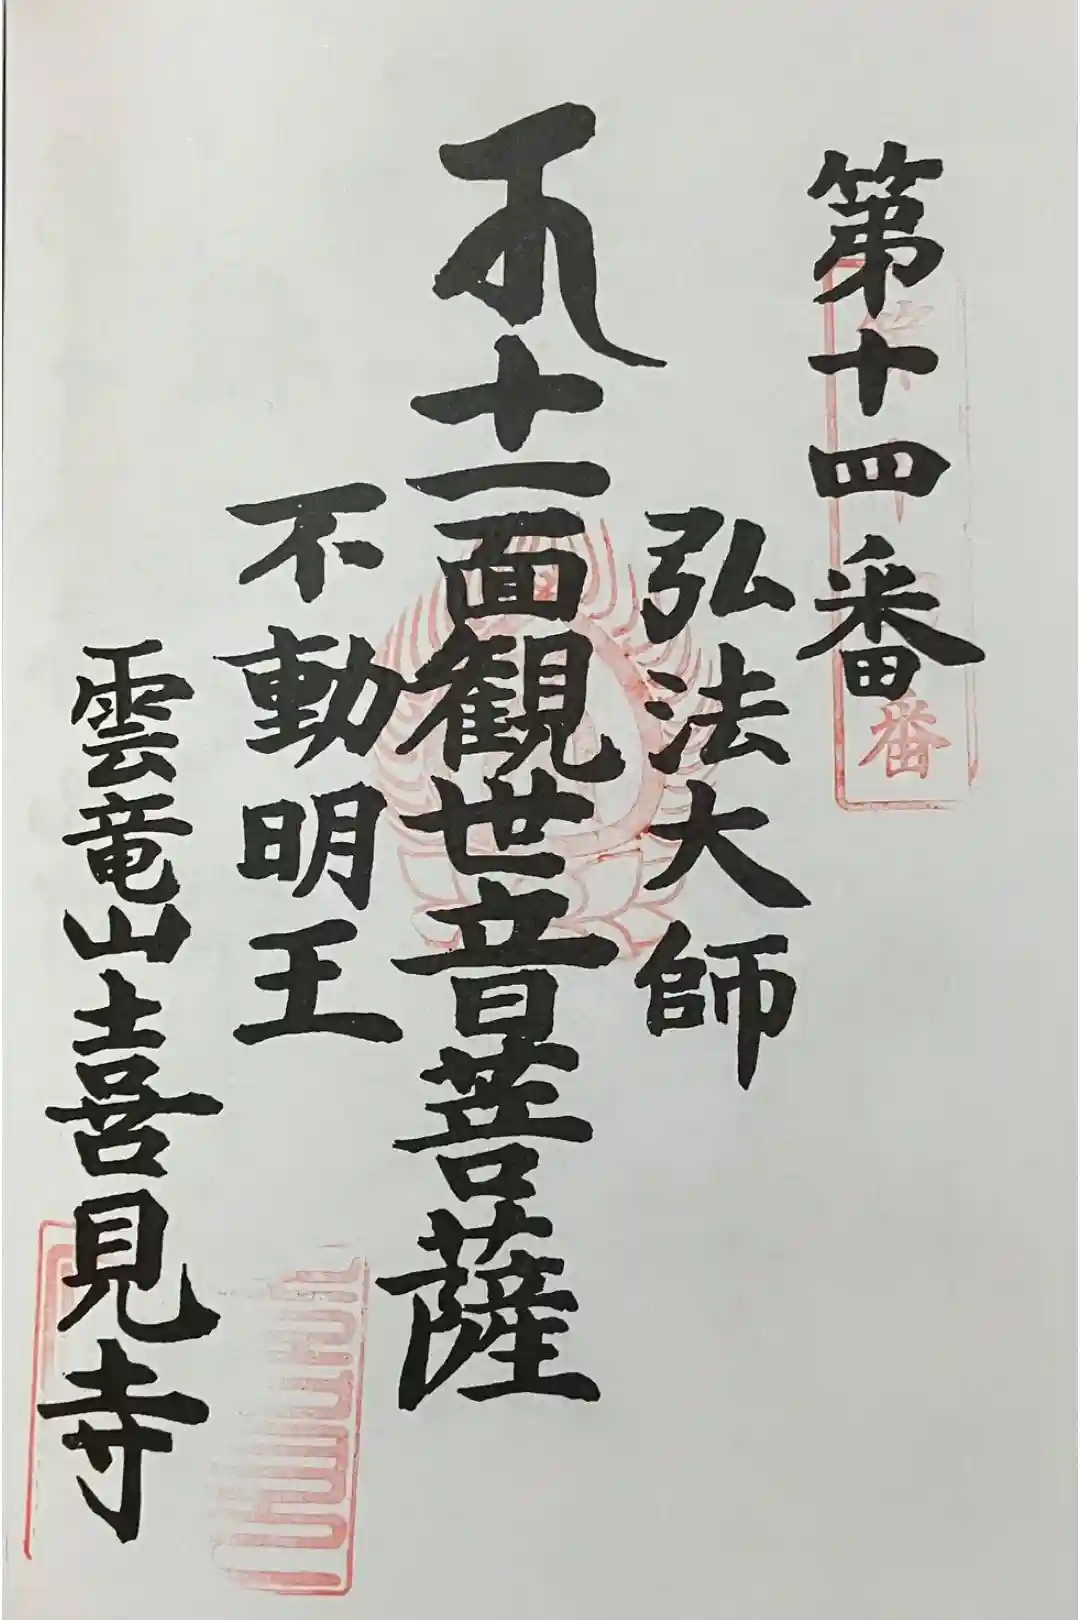 第十四番
弘法大師
十一面観世音菩薩
不動明王
雲竜山 喜見寺
番